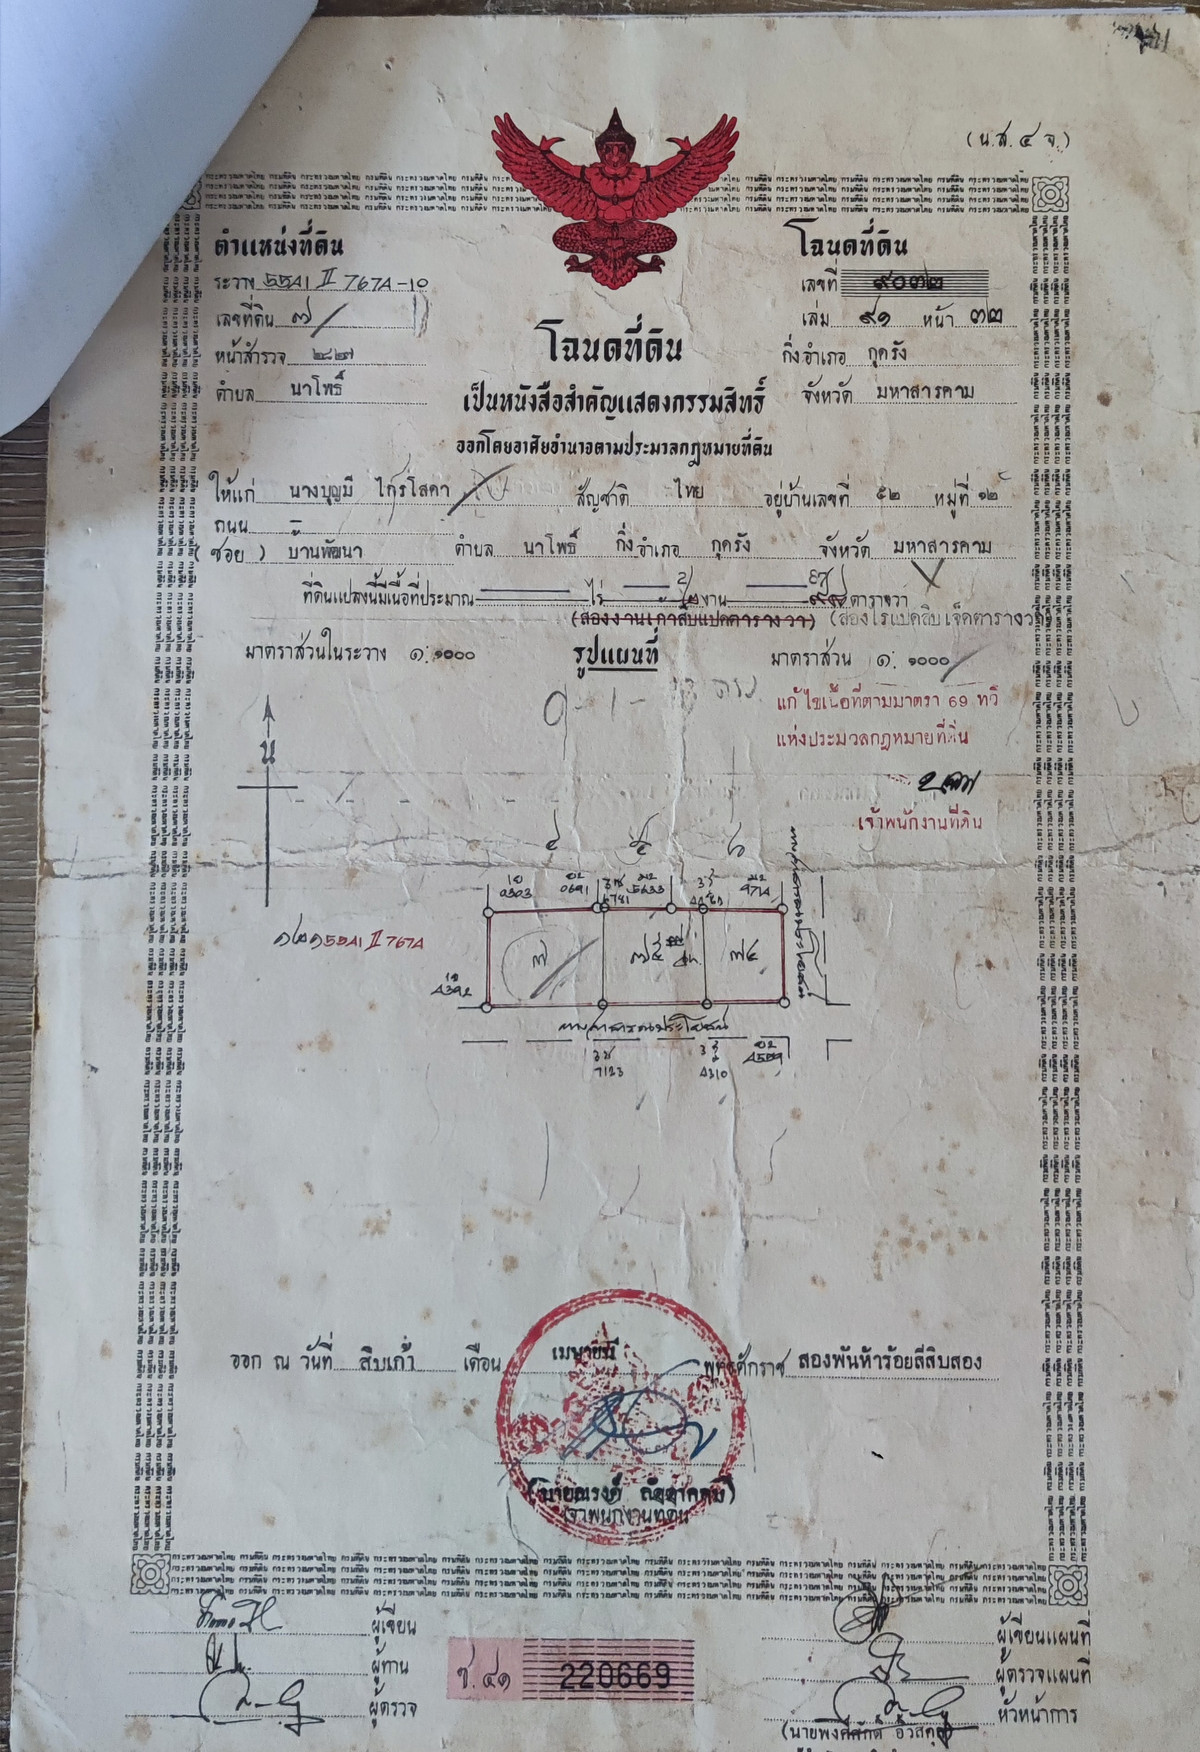 (น.ส.๔ จ.)
ตำแหน่งที่ดิน
ระวาง 55A1 II 767A-10
เลขที่ดิน ๗
หน้าสำรวจ ๒๘๗
ตำบล นาโพธิ์
โฉนดที่ดิน
เลขที่ ๙๐๓๒
เล่ม ๙๑ หน้า ๓๒
กิ่งอำเภอ กุดรัง
จังหวัด มหาสารคาม
โฉนดที่ดิน
เป็นหนังสือสำคัญแสดงกรรมสิทธิ์
ออกโดยอาศัยอำนาจตามประมวลกฎหมายที่ดิน
ให้แก่ นางบุญมี ไกรโสดา สัญชาติ ไทย อยู่บ้านเลขที่ ๕๒ หมู่ที่ ๑๒
ถนน –
(ซอย) บ้านพัฒนา ตำบล นาโพธิ์ กิ่งอำเภอ กุดรัง จังหวัด มหาสารคาม
2 87
ที่ดินแปลงนี้มีเนื้อที่ประมาณ ไร่ ๒ งาน ๙๘ ตารางวา
(สองงานเก้าสิบแปดตารางวา) (สองไร่แปดสิบเจ็ดตารางวา)
มาตราส่วนในระวาง ๑:๑๐๐๐ รูปแผนที่ มาตราส่วน ๑:๑๐๐๐
แก้ไขเนื้อที่ตามมาตรา 69 ทวิ
แห่งประมวลกฎหมายที่ดิน
เจ้าพนักงานที่ดิน
น
0303 0691 6781 5633 9714
55A1 II 767A
๗ ๗๕ ๗๔
4392
ทางสาธารณประโยชน์
ทางสาธารณประโยชน์
7123 4310 4509
ออก ณ วันที่ สิบเก้า เดือน เมษายน พุทธศักราช สองพันห้าร้อยสี่สิบสอง
เจ้าพนักงานที่ดิน
ผู้เขียน
ผู้ทาน
ผู้ตรวจ
ช.๔๑ 220669
ผู้เขียนแผนที่
ผู้ตรวจแผนที่
หัวหน้าการ